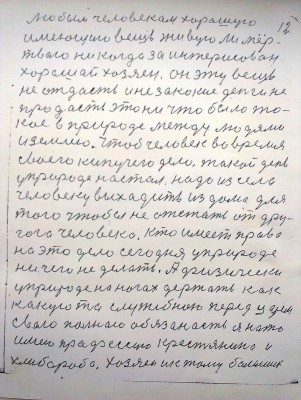 12
любым человекам хорошую
имеющию вещь живую ли мёр-
тваю никогда заинтерисован
хорошай хозяен, он эту вещь
не отдасть и не за какие деги не
продасть это ничто было та-
кое в природе между людями
и землею. Чтоб человек во время
своего кипучего дела, такой день
у природе настал, надо из села
человеку выхадить из дома для
того чтобы не отстать от дру-
гога человека. Кто имеет права
на это дело сегодня у природе
ничего не делать. А физически
у природе на ногах держать как
какую та служебною перед
сваю полнаю обязаность я нато
имею прафессию крестянина и
хлибароба, хозяен и к тому больших